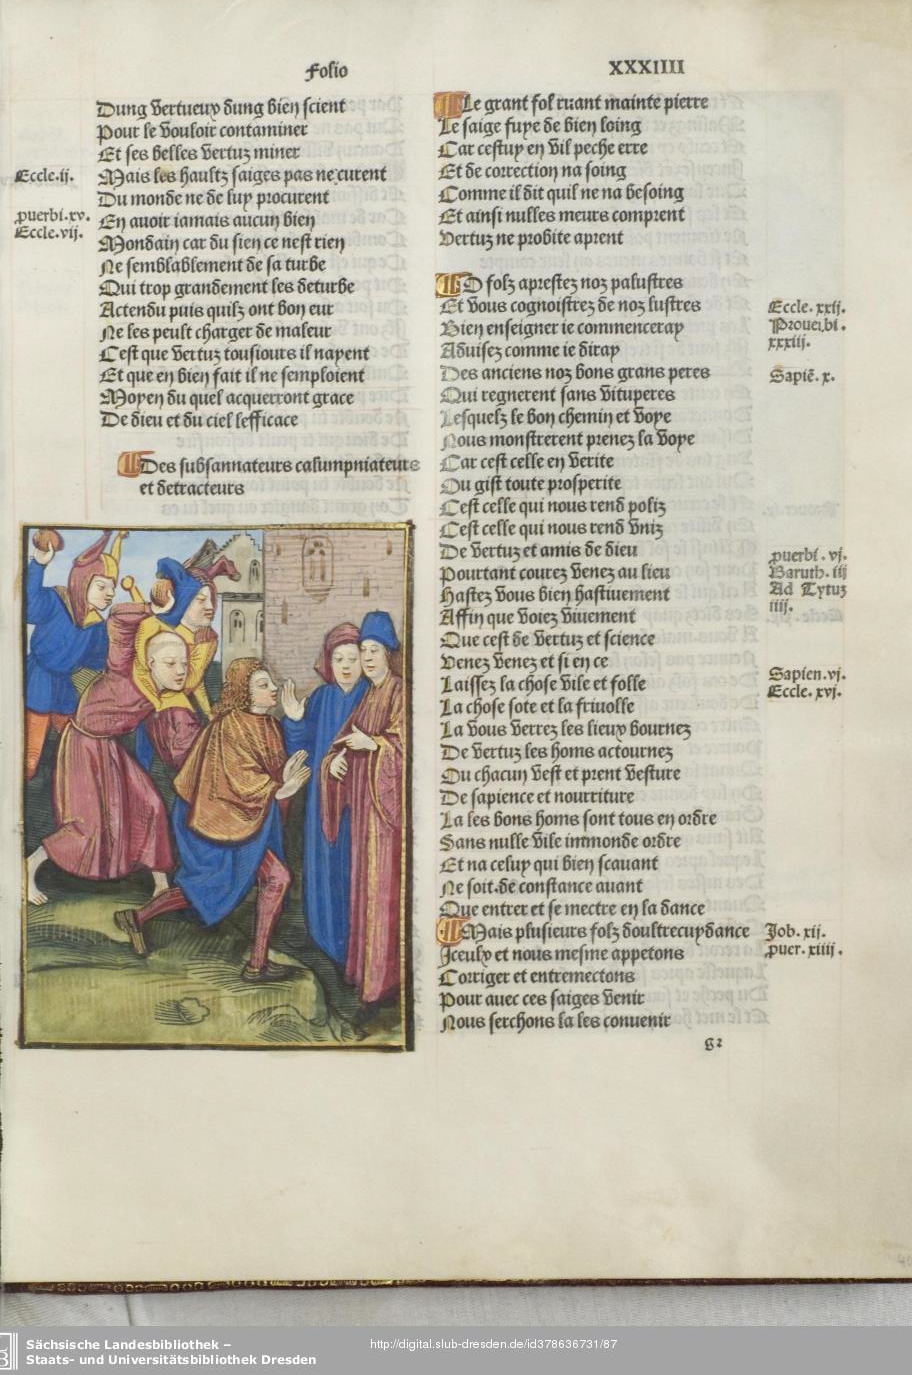 Folio
XXXIIII
Dung vertueux dung bien scient
Pour le vouloir contaminer
Et ses belles vertuz miner
Mais les haultz saiges pas ne curent
Du monde ne de luy procurent
En avoir iamais aucun bien
Mondain car du sien ce nest rien
Ne semblablement de sa turbe
Qui trop grandement les deturbe
Actendu puis quilz ont bon eur
Ne les peult charger de maleur
Cest que vertuz tousiours il nayent
Et que en bien fait il ne semploient
Moyen du quel acquerront grace
De dieu et du ciel lefficace
Eccle.ij.
puerbi.xv.
Eccle.vij.
Des subsannateurs calumpniateurs
et detracteurs
Le grant fol ruant mainte pierre
Le saige fuye de bien loing
Car cestuy en vil peche erre
Et de correction na soing
Comme il dit quil ne na besoing
Et ainsi nulles meurs comprent
Vertuz ne probite aprent
O folz aprestez noz palustres
Et vous cognoistrez de noz lustres
Bien enseigner ie commenceray
Advisez comme ie diray
Des anciens noz bons grans peres
Qui regnerent sans vituperes
Lesquelz le bon chemin et voye
Nous monstrerent prenez la voye
Car cest celle en verite
Ou gist toute prosperite
Cest celle qui nous rend poliz
Cest celle qui nous rend vniz
De vertuz et amis de dieu
Pourtant courez venez au lieu
Hastez vous bien hastiuement
Affin que voiez viuement
Que cest de vertuz et science
Venez venez et si en ce
Laissez la chose vile et folle
La chose sote et la friuolle
La vous verrez les lieux bournez
De vertuz les homs actournez
Ou chacun vest et prent vesture
De sapience et nourriture
La les bons homs sont tous en ordre
Sans nulle vile immonde ordre
Et na celuy qui bien scauant
Ne soit.de constance auant
Que entrer et se mectre en la dance
Mais plusieurs folz doultrecuydance
Iceulx et nous mesme appetons
Corriger et entremectons
Pour auec ces saiges venir
Nous serchons la les conuenir
Eccle.xxij.
Prouerbi.
xxxiij.
Sapiē.x.
puerbi.vj.
Baruth.iij
Ad Tytuz
iiij.
Sapien.vj.
Eccle.xvj.
Job.xij.
puer.xiiij.
Sächsische Landesbibliothek –
Staats- und Universitätsbibliothek Dresden
http://digital.slub-dresden.de/id378636731/87